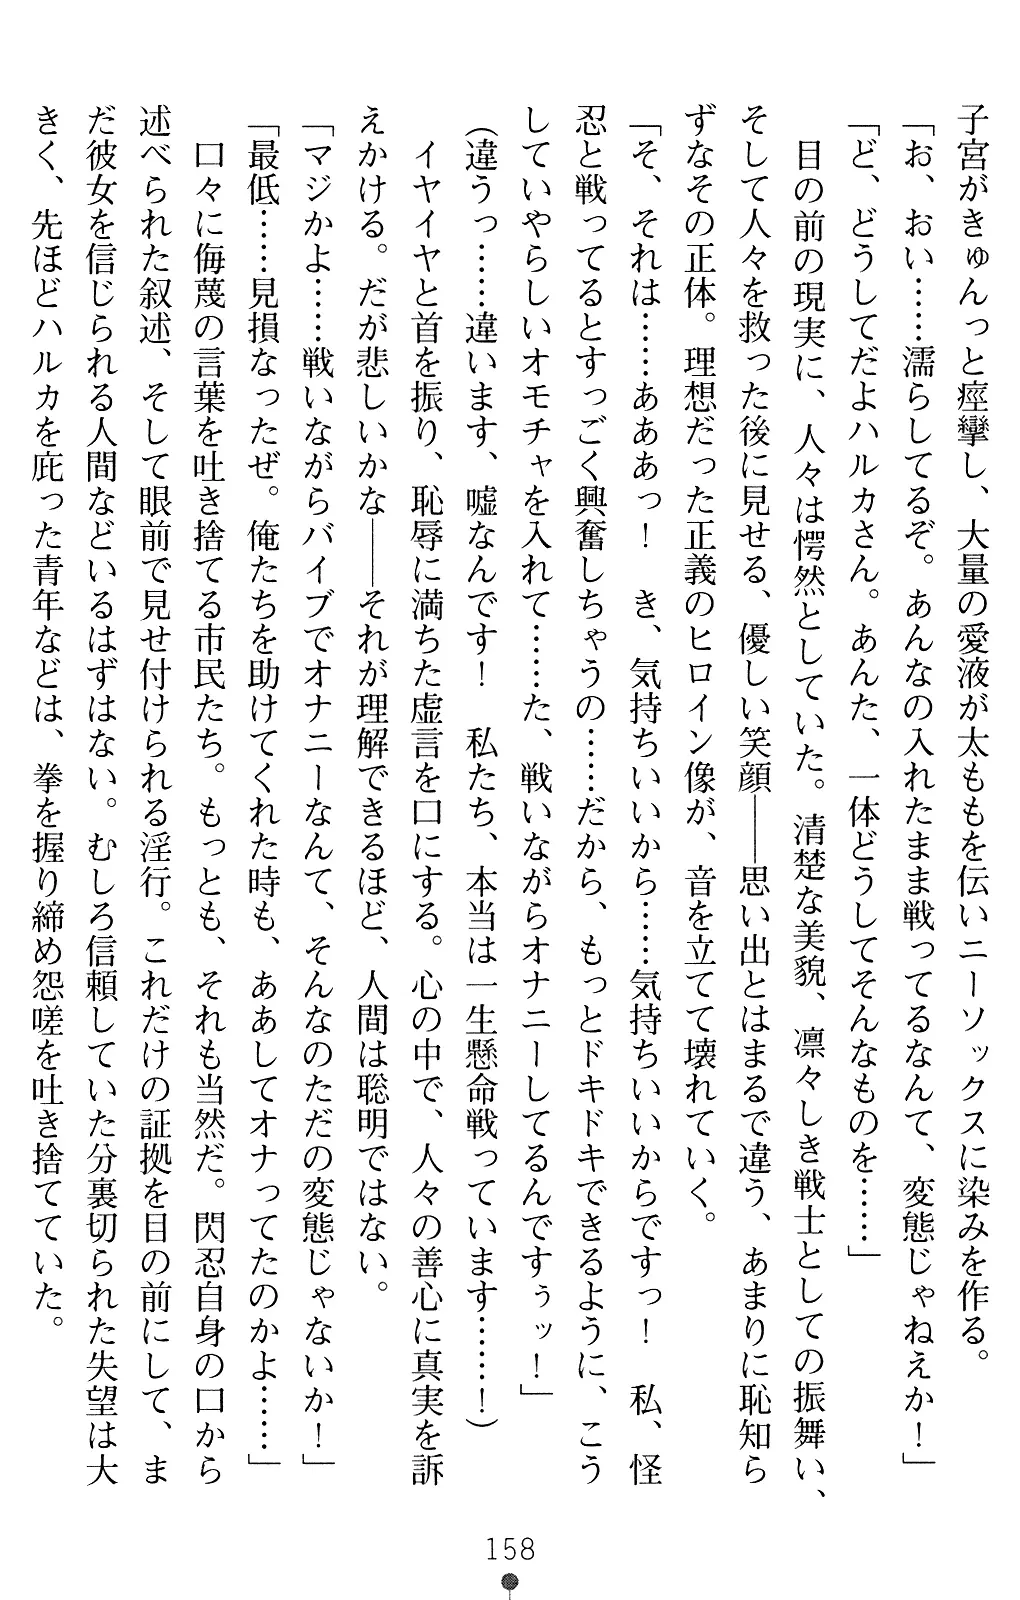 子宮がきゅんっと痙攣し、大量の愛液が太ももを伝いニーソックスに染みを作る。
「お、おい……濡らしてるぞ。あんなの入れたまま戦ってるなんて、変態じゃねえか！」
「ど、どうしてだよハルカさん。あんた、一体どうしてそんなものを……」
　目の前の現実に、人々は愕然としていた。清楚な美貌、凛々しき戦士としての振舞い、
そして人々を救った後に見せる、優しい笑顔――思い出とはまるで違う、あまりに恥知ら
ずなその正体。理想だった正義のヒロイン像が、音を立てて壊れていく。
「そ、それは……あああっ！　き、気持ちいいから……気持ちいいからですっ！　私、怪
忍と戦ってるとすっごく興奮しちゃうの……だから、もっとドキドキできるように、こう
していやらしいオモチャを入れて……た、戦いながらオナニーしてるんですぅッ！」
（違うっ……違います、嘘なんです！　私たち、本当は一生懸命戦っています……！）
　イヤイヤと首を振り、恥辱に満ちた虚言を口にする。心の中で、人々の善心に真実を訴
えかける。だが悲しいかな――それが理解できるほど、人間は聡明ではない。
「マジかよ……戦いながらバイブでオナニーなんて、そんなのただの変態じゃないか！」
「最低……見損なったぜ。俺たちを助けてくれた時も、ああしてオナってたのかよ……」
　口々に侮蔑の言葉を吐き捨てる市民たち。もっとも、それも当然だ。閃忍自身の口から
述べられた叙述、そして眼前で見せ付けられる淫行。これだけの証拠を目の前にして、ま
だ彼女を信じられる人間などいるはずはない。むしろ信頼していた分裏切られた失望は大
きく、先ほどハルカを庇った青年などは、拳を握り締め怨嗟を吐き捨てていた。
158